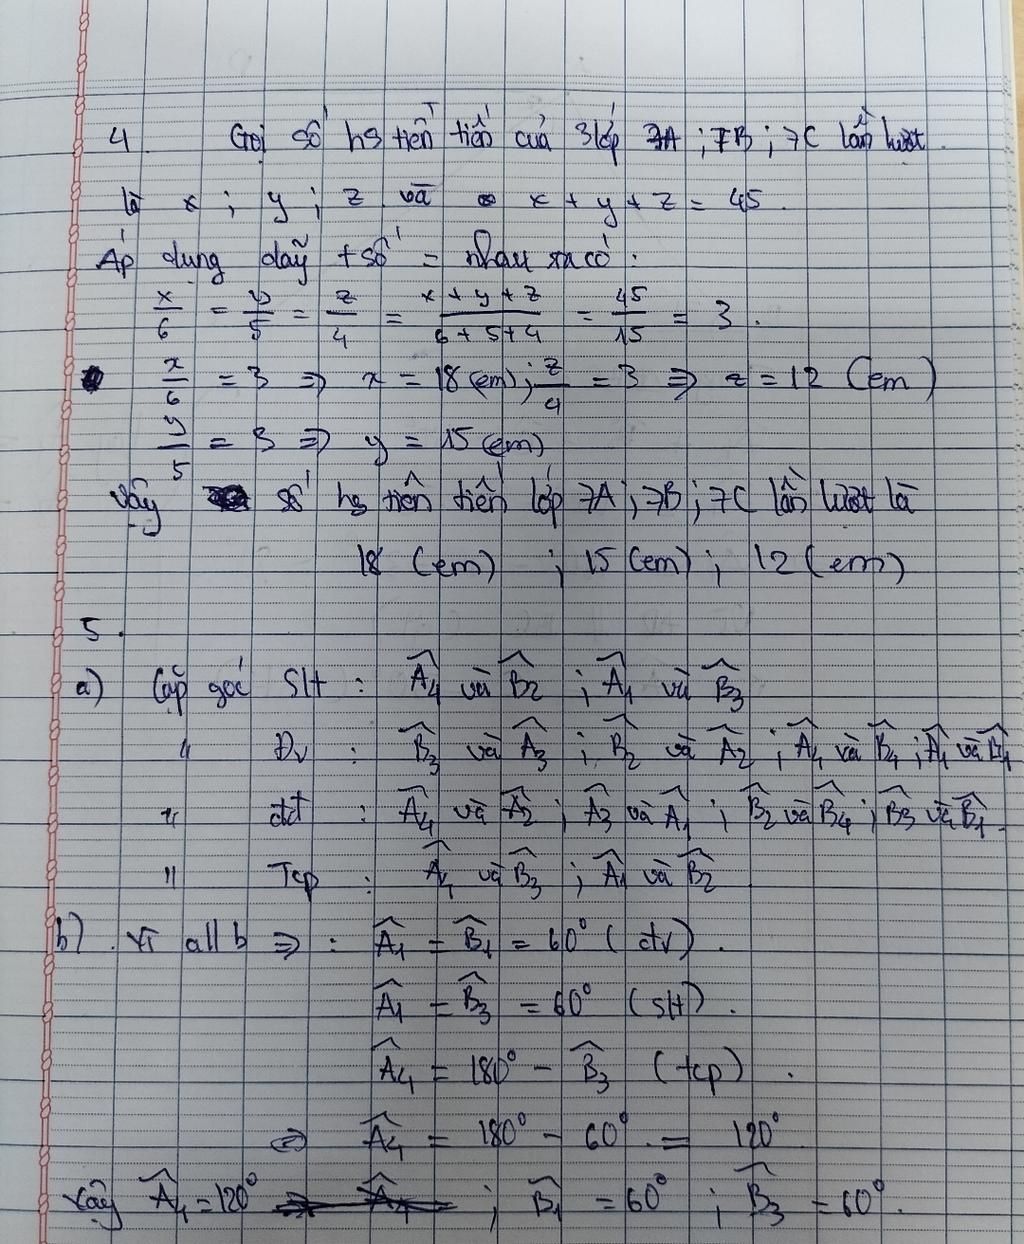 4. Gọi số hs tiên tiến của 3 lớp 7A ; 7B ; 7C lần lượt
là x ; y ; z và x + y + z = 45.
Áp dụng dãy t số = nhau ta có :
x/6 = y/5 = z/4 = (x + y + z)/(6 + 5 + 4) = 45/15 = 3.
x/6 = 3 ⇒ x = 18 (em) ; z/4 = 3 ⇒ z = 12 (em)
y/5 = 3 ⇒ y = 15 (em)
Vậy số hs tiên tiến lớp 7A ; 7B ; 7C lần lượt là
18 (em) ; 15 (em) ; 12 (em)
5.
a) Cặp góc slt : Â4 và B̂2 ; Â1 và B̂3
" Đv : B̂3 và Â3 ; B̂2 và Â2 ; Â4 và B̂4 ; Â1 và B̂1
" đđ : Â4 và Â2 ; Â3 và Â1 ; B̂2 và B̂4 ; B̂3 và B̂1.
" Tcp : Â4 và B̂3 ; Â1 và B̂2
b) . Vì a // b ⇒ : Â1 = B̂1 = 60° (đv).
Â1 = B̂3 = 60° (slt).
Â4 = 180° - B̂3 (tcp).
⇔ Â4 = 180° - 60° = 120°
Vậy Â4 = 120° ; B̂1 = 60° ; B̂3 = 60°.